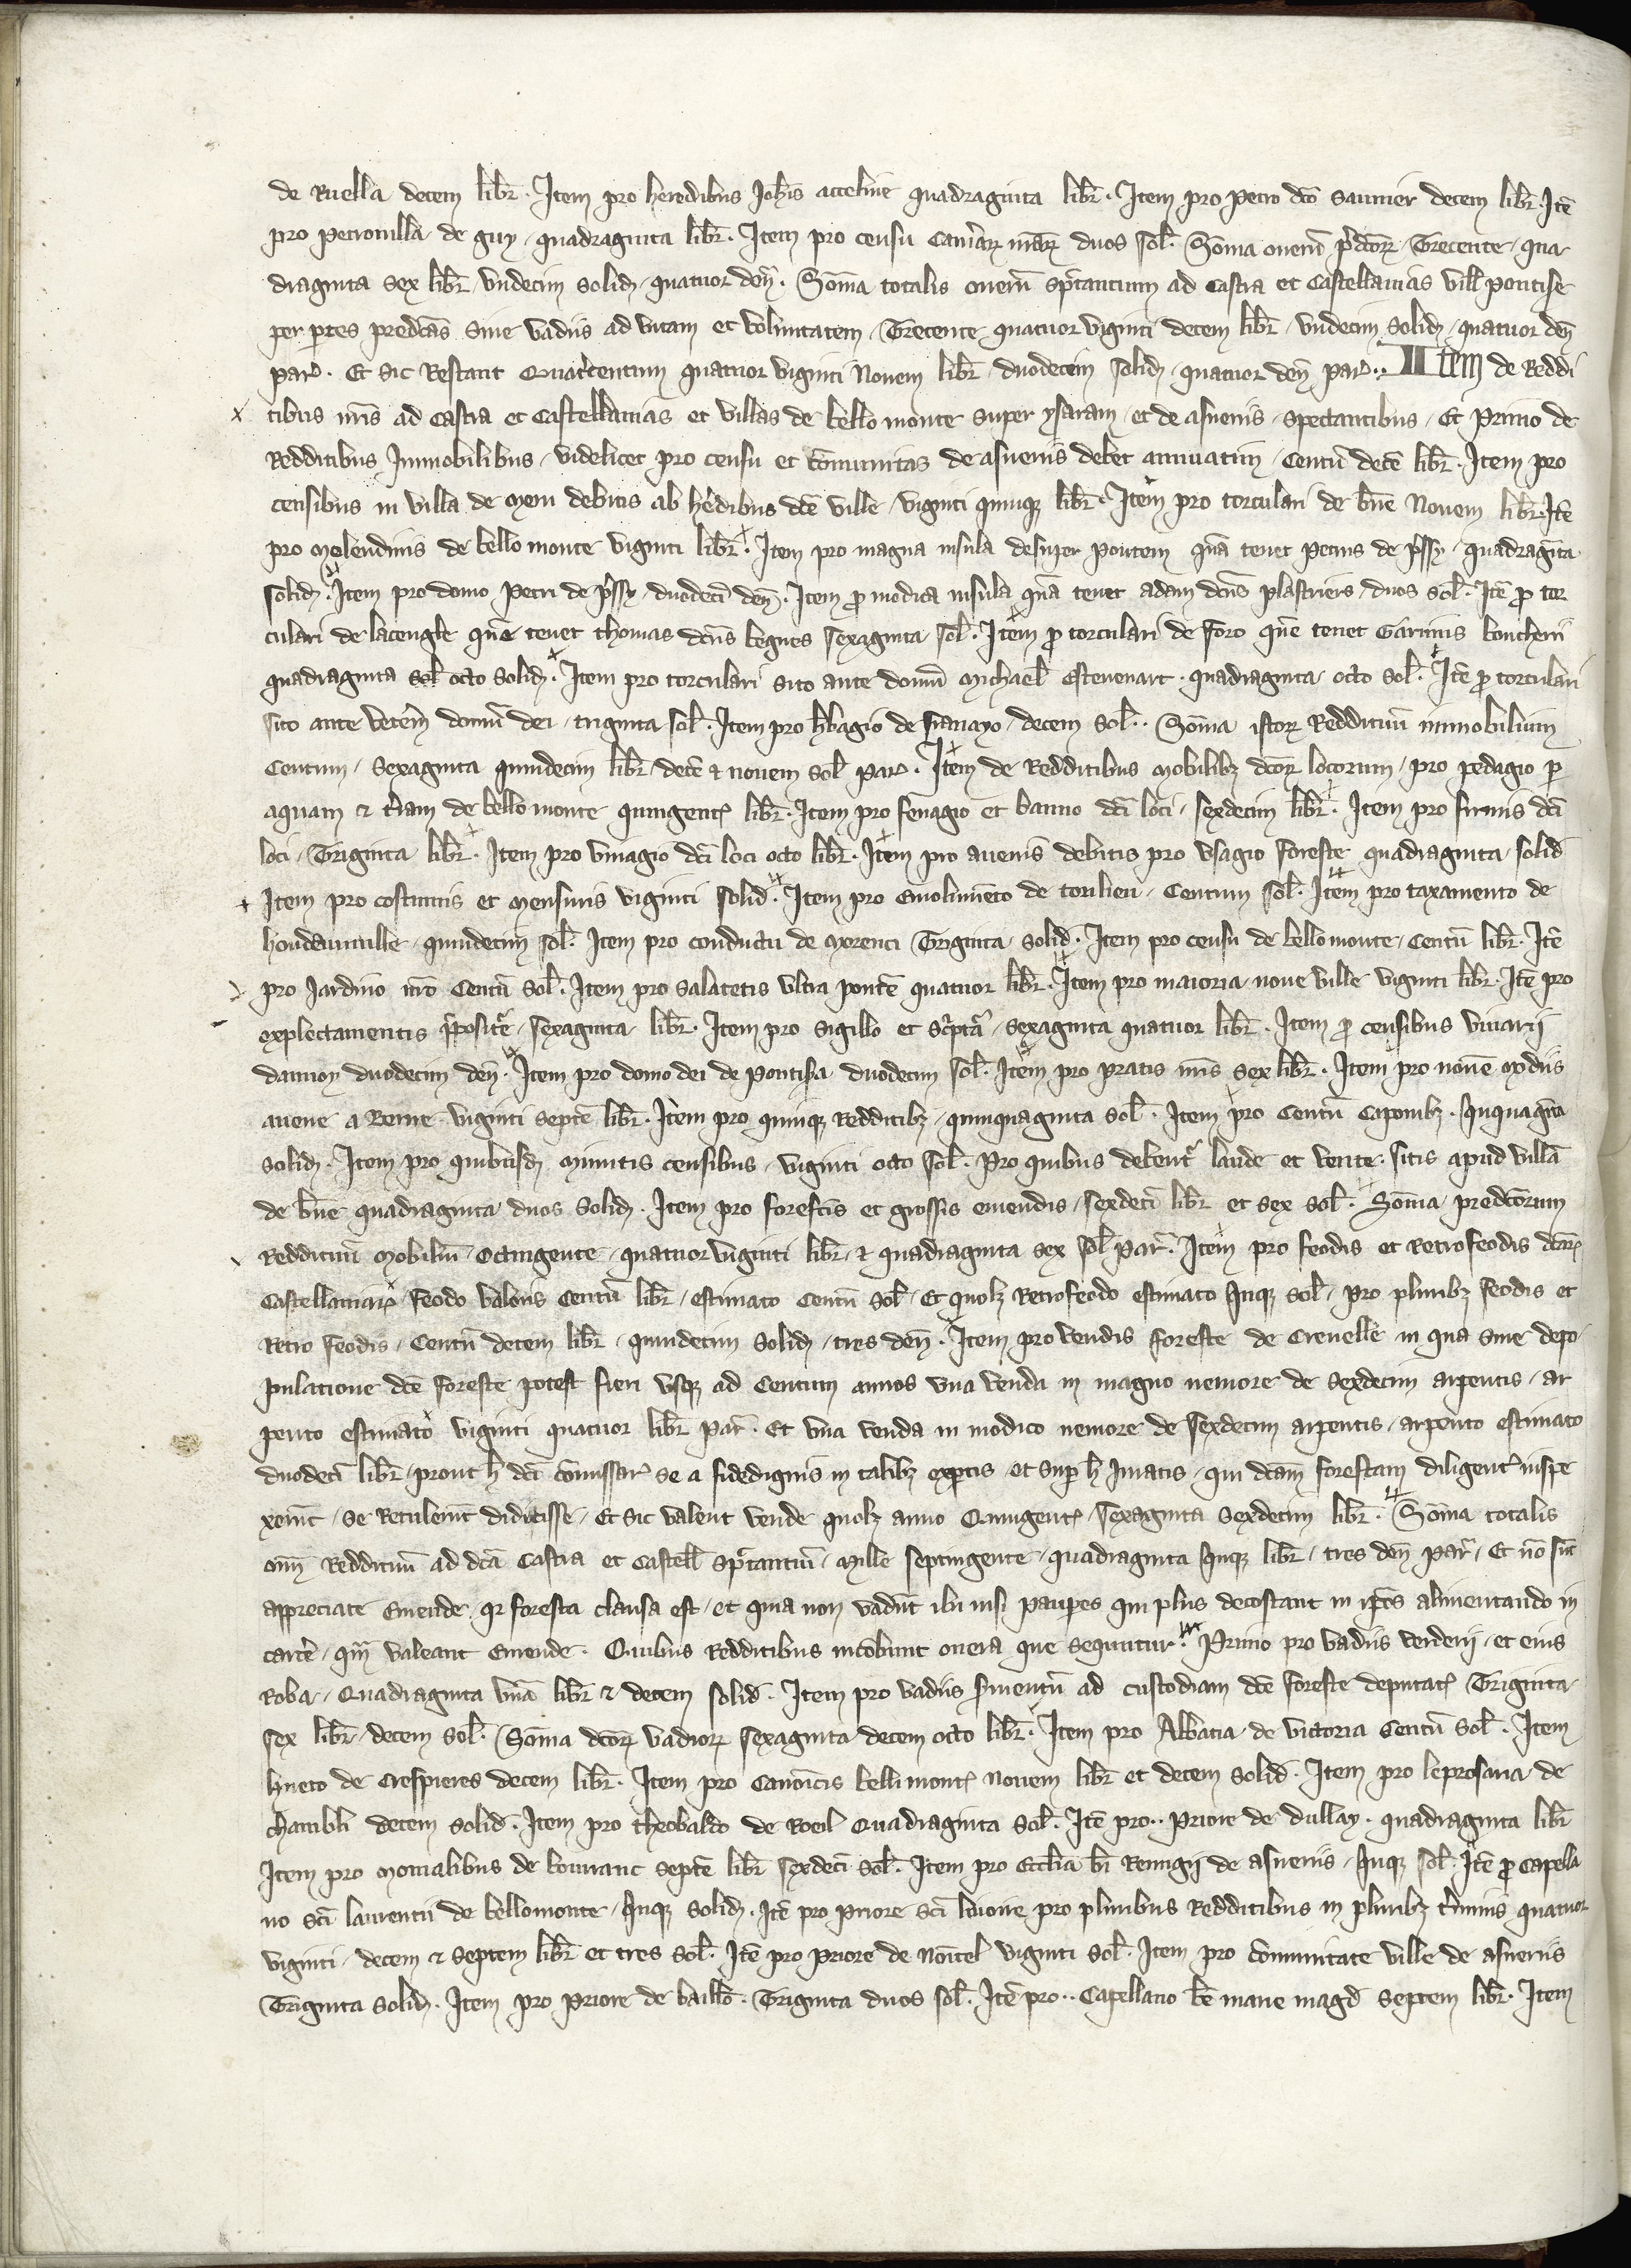 de Ruella decem libr̄. Item pro heredibus Joh̄is acceline quadraginta libr̄. Item pro Petro dc̄o Saunier decem libr̄. Itē
pro Petronilla de guy quadraginta libr̄. Item pro censu Cam̄arꝝ nr̄arꝝ duos sol̄. Som̄a onerū p̄dc̄orꝝ Trecente qua
draginta sex libr̄ vndecim solid quatuor den̄. Som̄a totalis onerū spectantium ad castra et Castellanias vill̄ Pontise
per p̄tes predc̄as sine vadiis ad vitam et voluntatem Trecente quatuor viginti decem libr̄ vndecim solid quatuor den̄
par̄. Et sic Restant Quatercentum quatuor viginti Nouem libr̄ duodecim solid quatuor den̄ par̄. Item de Reddi
tibus nr̄is ad castra et Castellanias et villas de bello monte super ysaram et de asneriis spectantibus. Et Primo de
Redditibus Immobilibus videlicet pro censu et cōmunitas de asneriis debet annuatim Centū decē libr̄. Item pro
censibus in villa de Meru debitis ab h̄edibus dc̄e ville viginti quinqꝫ libr̄. Item pro torculari de b̄ne Nouem libr̄. Itē
pro Molendinis de bello monte viginti libr̄. Item pro magna insula desuper Pontem quā tenet Petrus de p̄ssy quadragīta
solid. Item pro domo Petri de p̄ssy duodecī den̄. Item ꝓ modica insula quā tenet adam dc̄us plastriers duos sol̄. Itē ꝓ tor
culari de lacengle quē tenet thomas dc̄us begues sexaginta sol̄. Item ꝓ torculari de foro quē tenet Garinus boucherii
quadraginta sol̄ octo solid. Item pro torculari sito ante domū Michael̄ Estevenart quadraginta octo sol̄. Itē ꝓ torculari
sito ante veterē domū dei triginta sol̄. Item pro h̄bagio de decem sol̄. Som̄a istorꝝ Reddituū immobilium
Centum Sexaginta quindecim libr̄ decē ⁊ nouem sol̄ par̄. Item de Redditibus Mobilibꝫ dc̄orꝝ locorum pro pedagio ꝑ
aquam ⁊ t̄ram de bello monte quingent libr̄. Item pro fenagio et banno dc̄i loci sexdecim libr̄. Item pro furnis dc̄i
loci Triginta libr̄. Item pro vinagio dc̄i loci octo libr̄. Item pro auenis debitis pro vsagio foreste quadraginta solid
Item pro costumis et Mensuris viginti solid. Item pro Emolumēto de tonlieu Centum sol̄. Item pro taxamento de
hondainuille quindecim sol̄. Item pro conductu de Morenci Triginta solid. Item pro censu de bello monte Centū libr̄. Itē
pro Jardino nr̄o Centū sol̄. Item pro Salacetis vltra pontē quatuor libr̄. Item pro maioria noue ville viginti libr̄. Itē pro
explectamentis p̄posit̄e sexaginta libr̄. Item pro Sigillo et Sc̄ptā sexaginta quatuor libr̄. Item ꝓ censibus viuarij
dauuoy duodecim den̄. Item pro domo dei de Pontisa duodecim sol̄. Item pro pratis nr̄is sex libr̄. Item pro nouē modiis
auene a Berne viginti septē libr̄. Item pro quinqꝫ Redditibꝫ quinquaginta sol̄. Item pro Centū Caponibꝫ quinquagīta
solid. Item pro quibusd̄ minutis censibus viginti octo sol̄. Pro quibus debent̄ laude et vente sitis apud villā
de b̄ne quadraginta duos solid. Item pro forefc̄is et grossis emendis sexdecī libr̄ et sex sol̄. Som̄a predc̄orum
Reddituū Mobiliū Octingente quatuor viginti libr̄ ⁊ quadraginta sex sol̄ par̄. Item pro feodis et Retrofeodis dc̄arꝝ
Castellaniarꝝ feodo valoris Centū libr̄ estimato Centū sol̄ Et quolꝫ Retrofeodo estimato quinqꝫ sol̄ pro pluribꝫ feodis et
Retro feodis Centū decem libr̄ quindecim solid tres den̄. Item pro vendis foreste de Crenelle in qua sine depo
pulatione dc̄e foreste potest fieri vsqꝫ ad Centum annos vna venda in magno nemore de sexdecim arpentis ar
pento estimato viginti quatuor libr̄ par̄. Et vna venda in modico nemore de sexdecim arpentis arpento estimato
duodecī libr̄ prout h̄ dc̄i cōmissar̄ se a fidedignis in talibꝫ exꝑtis et sup̄ h̄ Juratis qui dc̄am forestam diligent̄ inspe
xerūt se Retulerūt didicisse Et sic valent vende quolꝫ anno Quingent sexaginta sexdecim libr̄. Som̄a totalis
om̄i Reddituū ad dc̄a castra et castell̄ spectantiū Mille septingente quadraginta quinqꝫ libr̄ tres den̄ par̄. Et nō sūt
appreciate Emende qr̄ foresta clausa est et quia non vadūt ibi nisi pauperes qui plus decostant in ip̄os alimentando in
carcē qm̄ valeant Emende. Quibus Redditibus incōbunt onera que sequntur. Primo pro vadiis verderij et eius
Roba Quadraginta vnā libr̄ ⁊ decem solid. Item pro vadiis s̄uientū ad custodiam dc̄e foreste deputat Triginta
sex libr̄ decem sol̄. Som̄a dc̄orꝝ vadiorꝝ sexaginta decem octo libr̄. Item pro Abbatia de victoria Centū sol̄. Item
hueto de Crespieres decem libr̄. Item pro Canōicis bellimont Nouem libr̄ et decem solid. Item pro leprosaria de
chambl̄i decem solid. Item pro theobaldo de Roeil Quadraginta sol̄. Itē pro.. Priore de dullay quadraginta libr̄
Item pro Monialibus de bouranc septē libr̄ sexdecī sol̄. Item pro Ecc̄lia bī Remigij de asneriis quinqꝫ sol̄. Itē ꝓ Capella
no sc̄i laurentii de bellomonte quinqꝫ solid. Itē pro Priore sc̄i pro pluribus Redditibus in pluribꝫ t̄minis quatuor
viginti decem ⁊ septem libr̄ et tres sol̄. Itē pro Priore de Nointel viginti sol̄. Item pro cōmunitate ville de asneriis
Triginta solid. Item pro Priore de baillo. Triginta duos sol̄. Itē pro.. Capellano bē marie magd̄ septem libr̄. Item